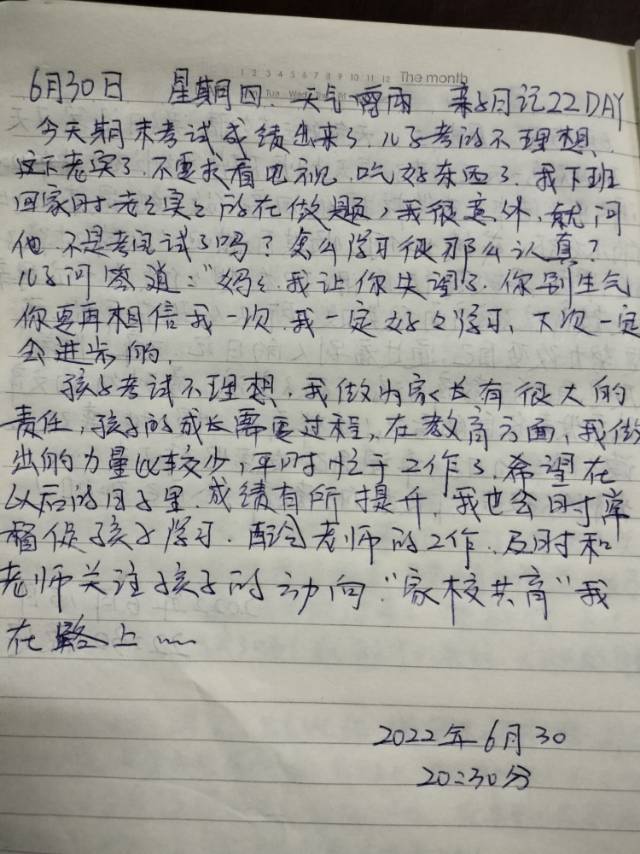 1 2 3 4 5 6 7 8 9 10 11 12 The month
6月30日 星期四 天气 雷雨 亲子日记22DAY
今天期末考试成绩出来了.儿子考的不理想.
这下老实了.不要求看电视.吃好东西了.我下班
回家时老老实实的在做题,我很意外.就问
他 不是考完试了吗?怎么学习很那么认真?
儿子回答道:"妈妈.我让你失望了.你别生气
你要再相信我一次.我一定好好学习.下次一定
会进步的.
孩子考试不理想.我做为家长有很大的
责任,孩子的成长需要过程,在教育方面,我做
出的力量比较少,平时忙于工作了.希望在
以后的日子里.成绩有所提升.我也会时常
督促孩子学习.配合老师的工作.及时和
老师关注孩子的动向."家校共育"我
在路上……
2022年6月30
20:30分